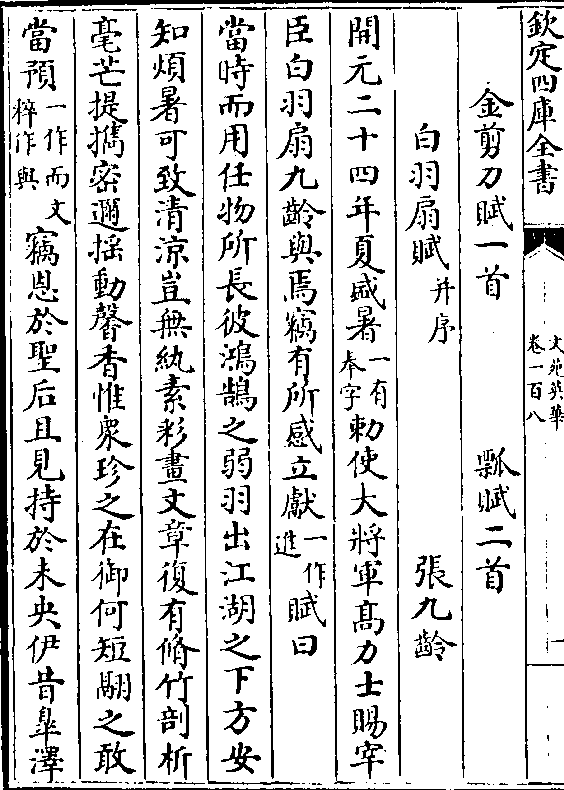 欽定四庫全書
文苑英華
卷一百八
一
金剪刀賦一首 瓢賦二首
白羽扇賦并序 張九齡
開元二十四年夏盛暑一有奉字勅使大將軍髙力士賜宰
臣白羽扇九齡與焉竊有所感立獻一作進賦曰
當時而用任物所長彼鴻鵠之弱羽出江湖之下方安
知煩暑可致清涼豈無紈素彩畫文章復有脩竹剖析
毫芒提攜密邇揺動馨香惟衆珍之在御何短翮之敢
當預一作而文粹作與竊恩於聖后且見持於未央伊昔臯澤